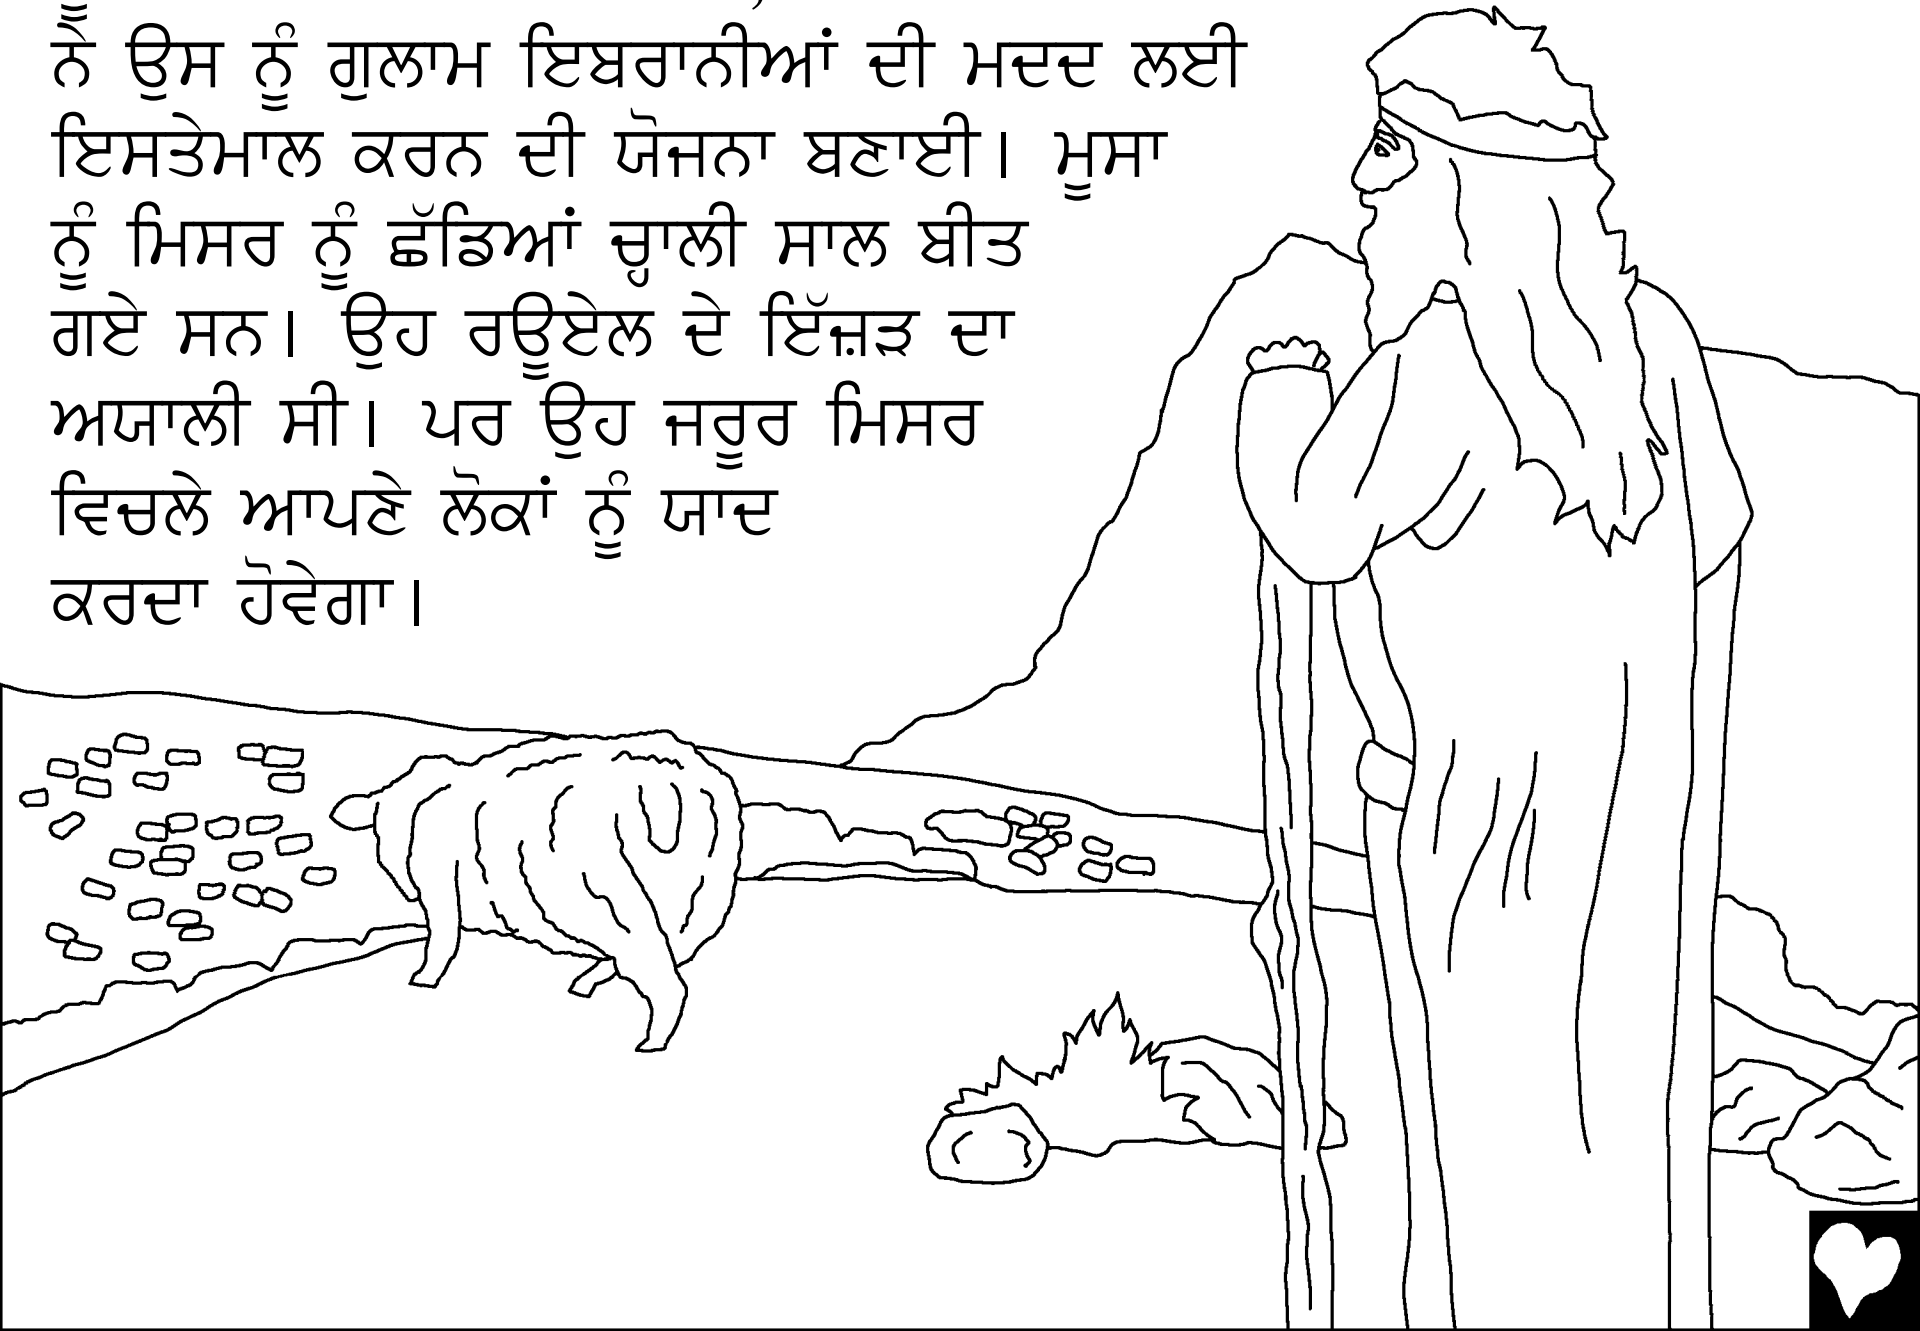 ਨੇ ਉਸ ਨੂੰ ਗੁਲਾਮ ਇਬਰਾਨੀਆਂ ਦੀ ਮਦਦ ਲਈ
ਇਸਤੇਮਾਲ ਕਰਨ ਦੀ ਯੋਜਨਾ ਬਣਾਈ। ਮੂਸਾ
ਨੂੰ ਮਿਸਰ ਨੂੰ ਛੱਡਿਆਂ ਚ੍ਹਾਲੀ ਸਾਲ ਬੀਤ
ਗਏ ਸਨ। ਉਹ ਰਊਏਲ ਦੇ ਇੱਜ਼ੜ ਦਾ
ਅਯਾਲੀ ਸੀ। ਪਰ ਉਹ ਜਰੂਰ ਮਿਸਰ
ਵਿਚਲੇ ਆਪਣੇ ਲੋਕਾਂ ਨੂੰ ਯਾਦ
ਕਰਦਾ ਹੋਵੇਗਾ।